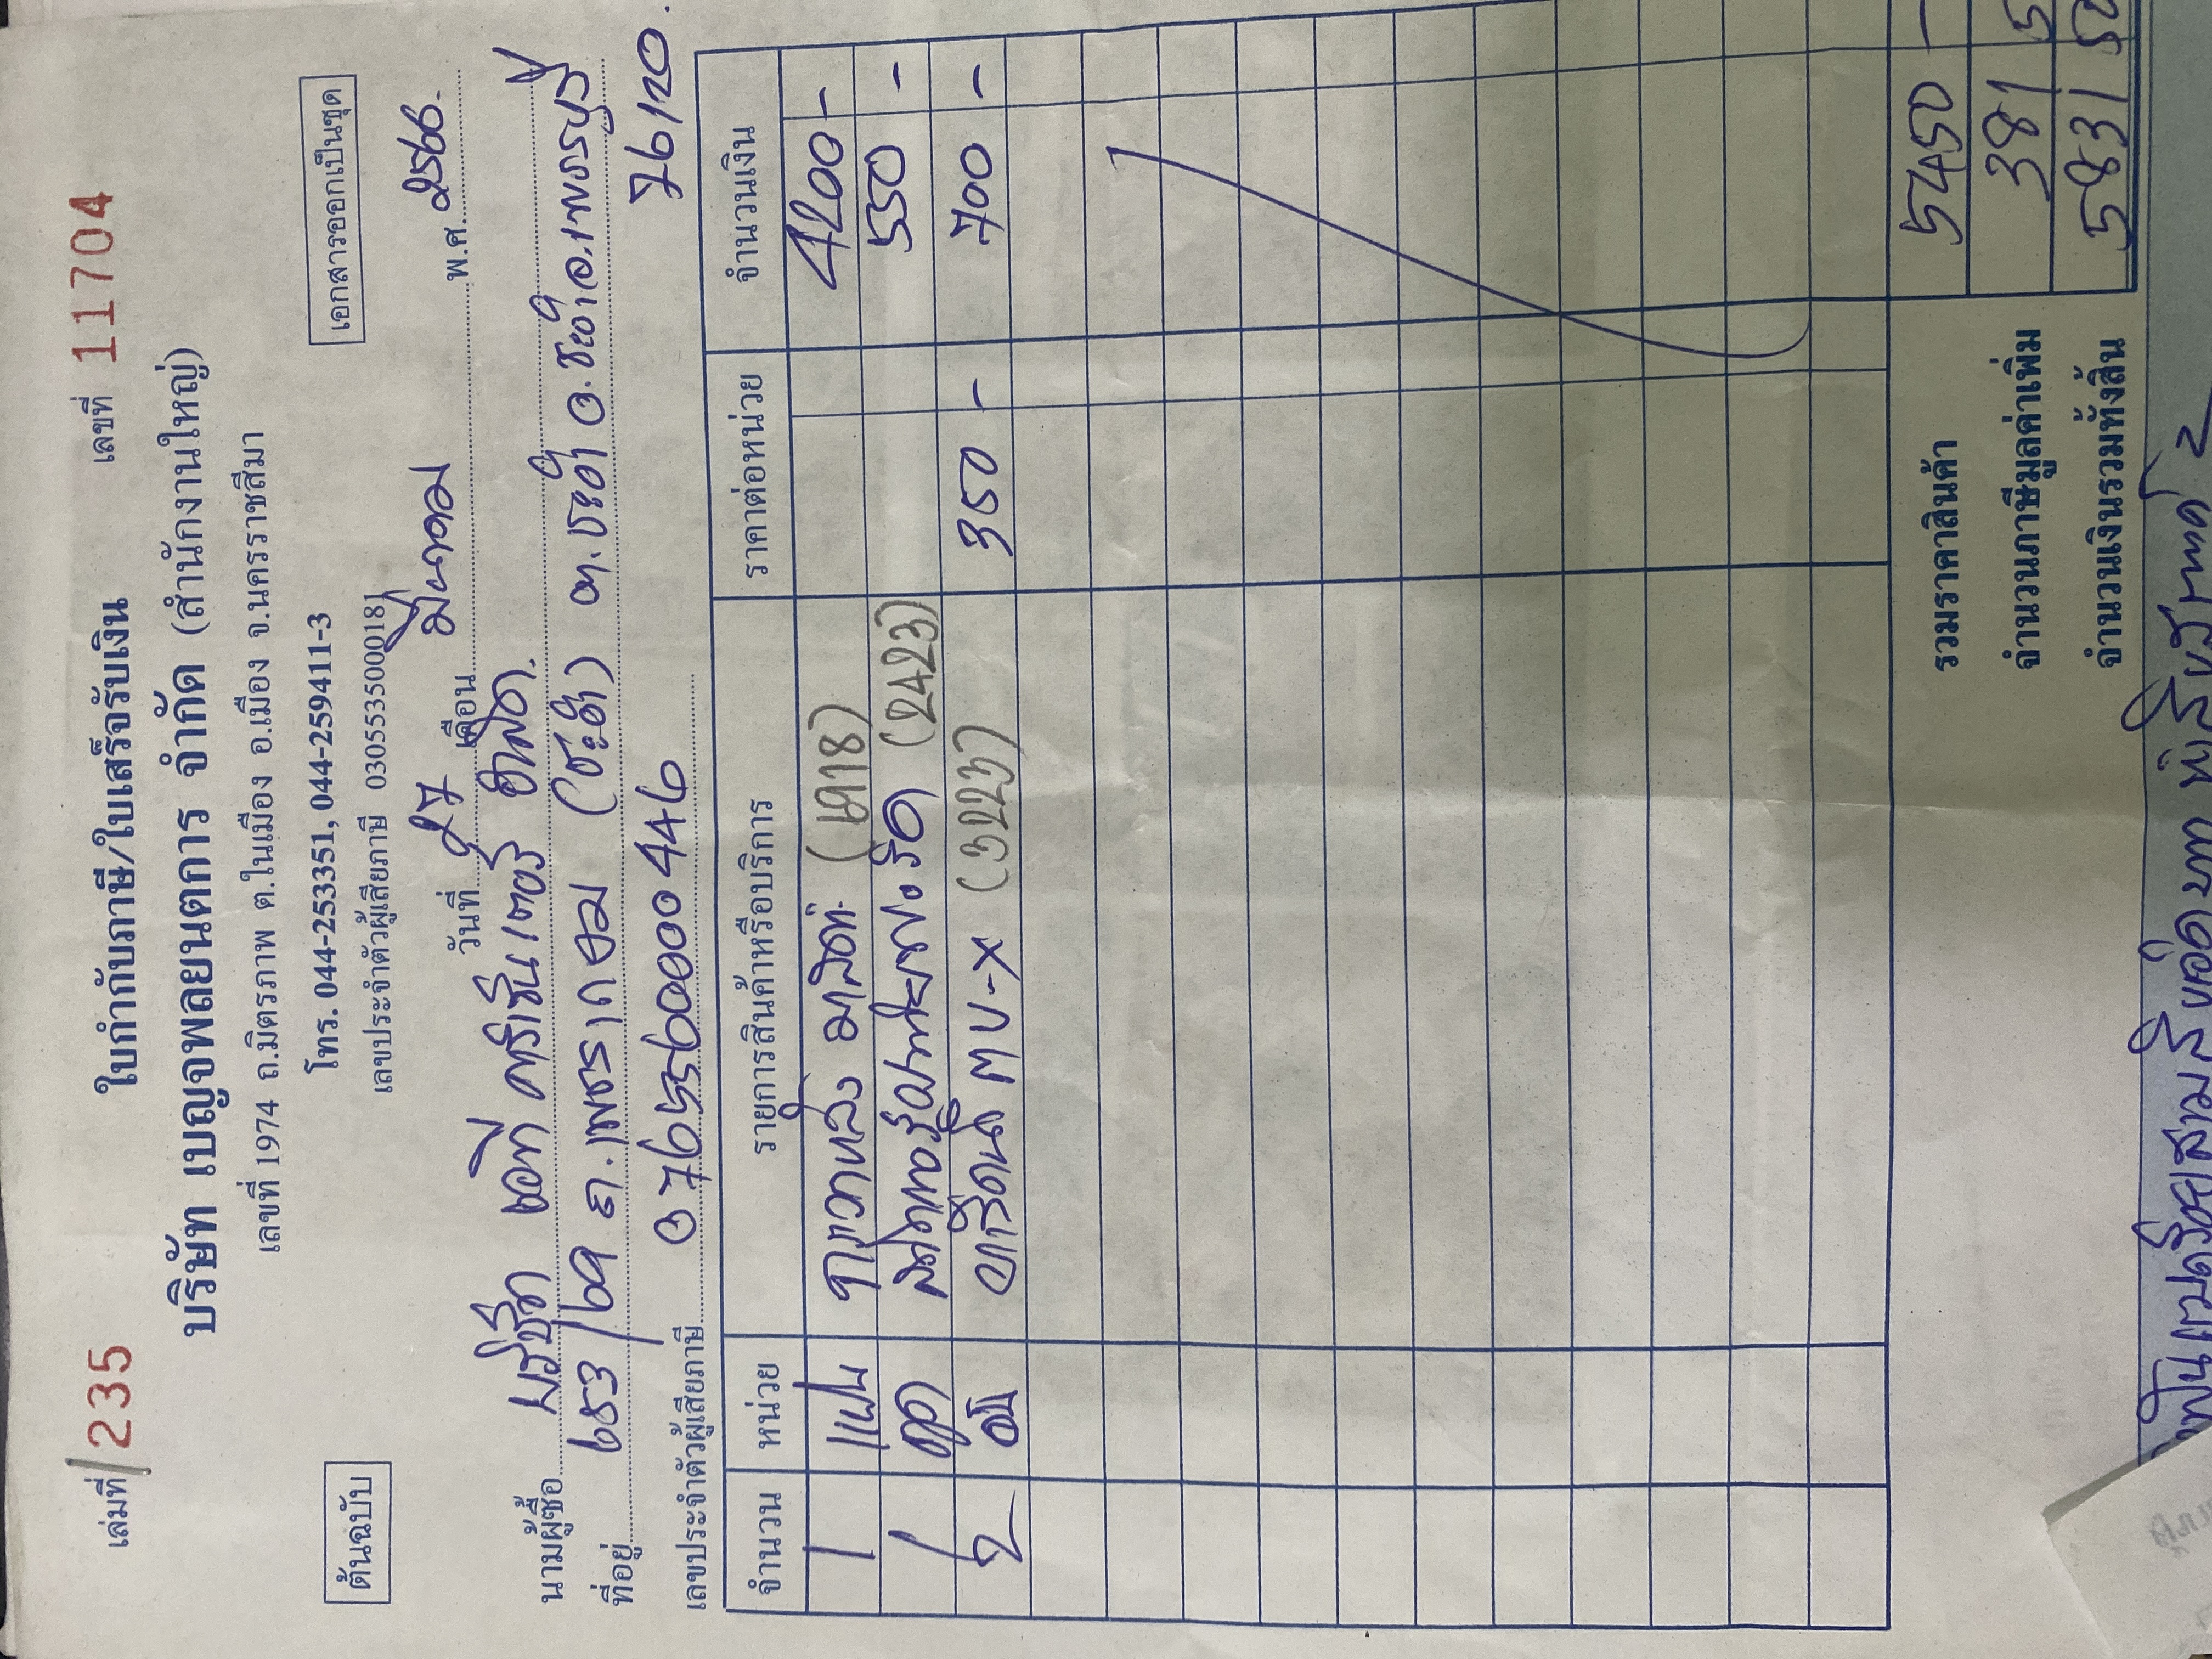 เล่มที่ 235
ใบกำกับภาษี/ใบเสร็จรับเงิน
เลขที่ 11704
บริษัท เบญจพลยนตการ จำกัด (สำนักงานใหญ่)
เลขที่ 1974 ถ.มิตรภาพ ต.ในเมือง อ.เมือง จ.นครราชสีมา
ต้นฉบับ
โทร. 044-253351, 044-259411-3
เอกสารออกเป็นชุด
เลขประจำตัวผู้เสียภาษี 0305535000181
วันที่ 27 เดือน มีนาคม พ.ศ. 2566
นามผู้ซื้อ บริษัท เอที คริเอชั่น เตอร์ จำกัด.
ที่อยู่ 653/69 ถ.เพชรเกษม (ชะอำ) ต.ชะอำ อ.ชะอำ จ.เพชรบุรี
76120
เลขประจำตัวผู้เสียภาษี 0765560000446
จำนวน หน่วย รายการสินค้าหรือบริการ ราคาต่อหน่วย จำนวนเงิน
1 แผ่น (6918) 4200 -
1 ชุด (2423) 550 -
2 MU-X (3223) 350 - 700 -
รวมราคาสินค้า 5450 -
จำนวนภาษีมูลค่าเพิ่ม 381
จำนวนเงินรวมทั้งสิ้น 5831
ห้าพันแปดร้อยสามสิบเอ็ดบาท ห้าสิบสตางค์